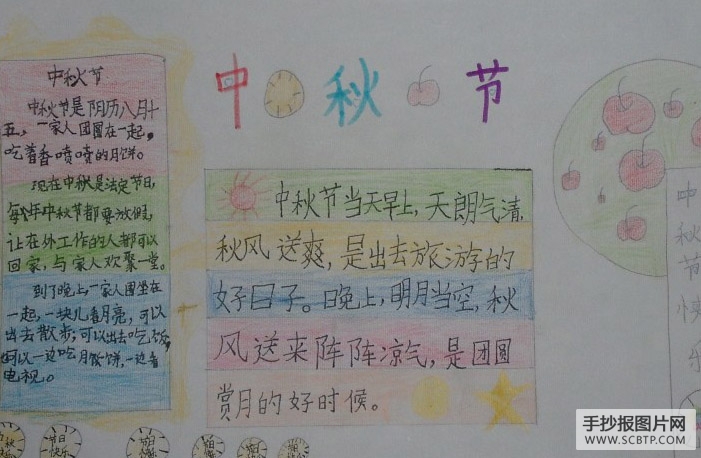 中秋节
中秋节
中秋节是阴历八月十
五，一家人团圆在一起，
吃着香喷喷的月饼。
现在中秋是法定节日，
每年中秋节都要放假，
让在外工作的人都可以
回家，与家人欢聚一堂。
到了晚上，一家人围坐在
一起，一块儿看月亮，可以
出去散步，可以出去吃饭，
可以一边吃月饼，一边看
电视。
中秋节当天早上，天朗气清，
秋风送爽，是出去旅游的
好日子。晚上，明月当空，秋
风送来阵阵凉气，是团圆
赏月的好时候。
中
秋
节
快
乐
中秋
快乐
节日
快乐
节日
快乐
手抄报图片网
WWW.SCBTP.COM